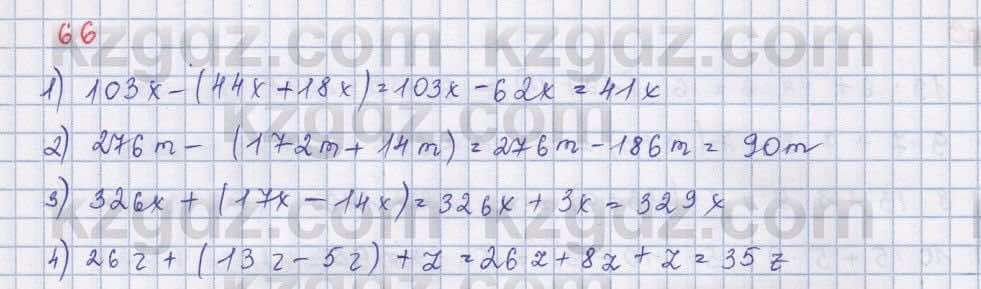 66
1) 103x - (44x + 18x) = 103x - 62x = 41x
2) 276m - (172m + 14m) = 276m - 186m = 90m
3) 326x + (17x - 14x) = 326x + 3x = 329x
4) 26z + (13z - 5z) + z = 26z + 8z + z = 35z
kzgdz.com kzgdz.com
kzgdz.com
kzgdz.com kzgdz.com